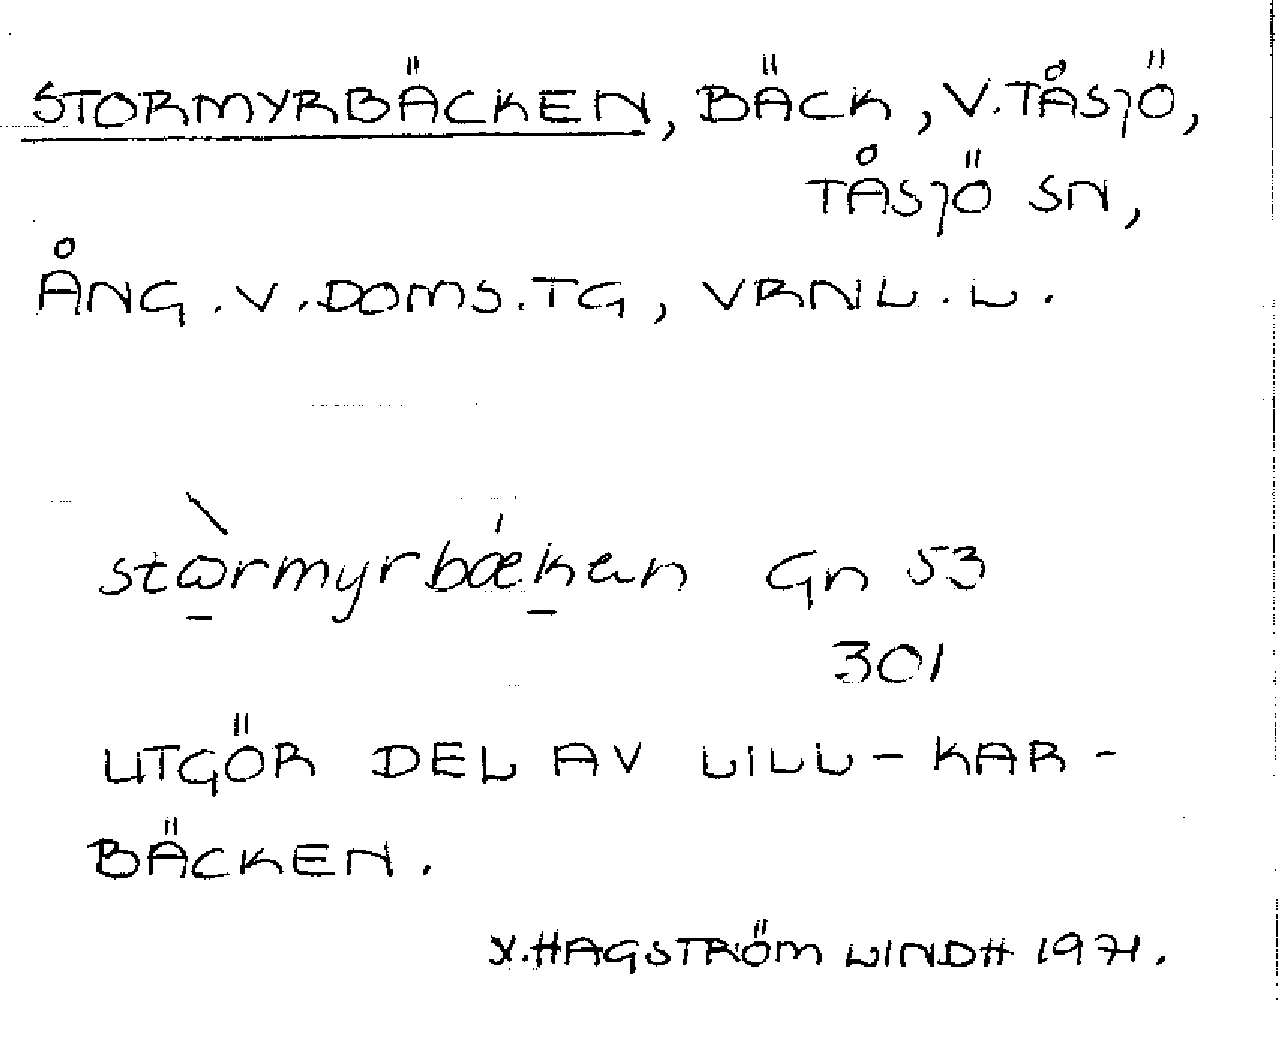 STORMYRBÄCKEN, BÄCK, V.TÅSJÖ,
TÅSJÖ SN,
ÅNG.V.DOMS.TG, VRNL.L.
stòrmyrbǽken Gn 53
301
UTGÖR DEL AV LILL-KAR-
BÄCKEN.
HAGSTRÖM LINDH 1971.